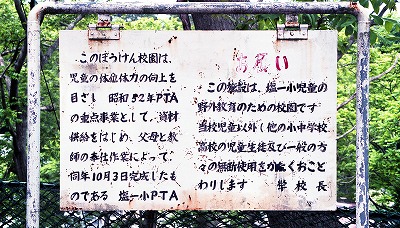 このぼうけん校園は、
児童の体位体力の向上を
目ざし 昭和52年PTA
の重点事業として、資材
供給をはじめ、父母と教
師の奉仕作業によって、
同年10月3日完成したも
のである 塩一小PTA
お願い
この施設は、塩一小児童の
野外教育のための校園です
当校児童以外(他の小中学校
高校の児童生徒及び一般の方
々の無断使用をかたくおこと
わりします 学校長